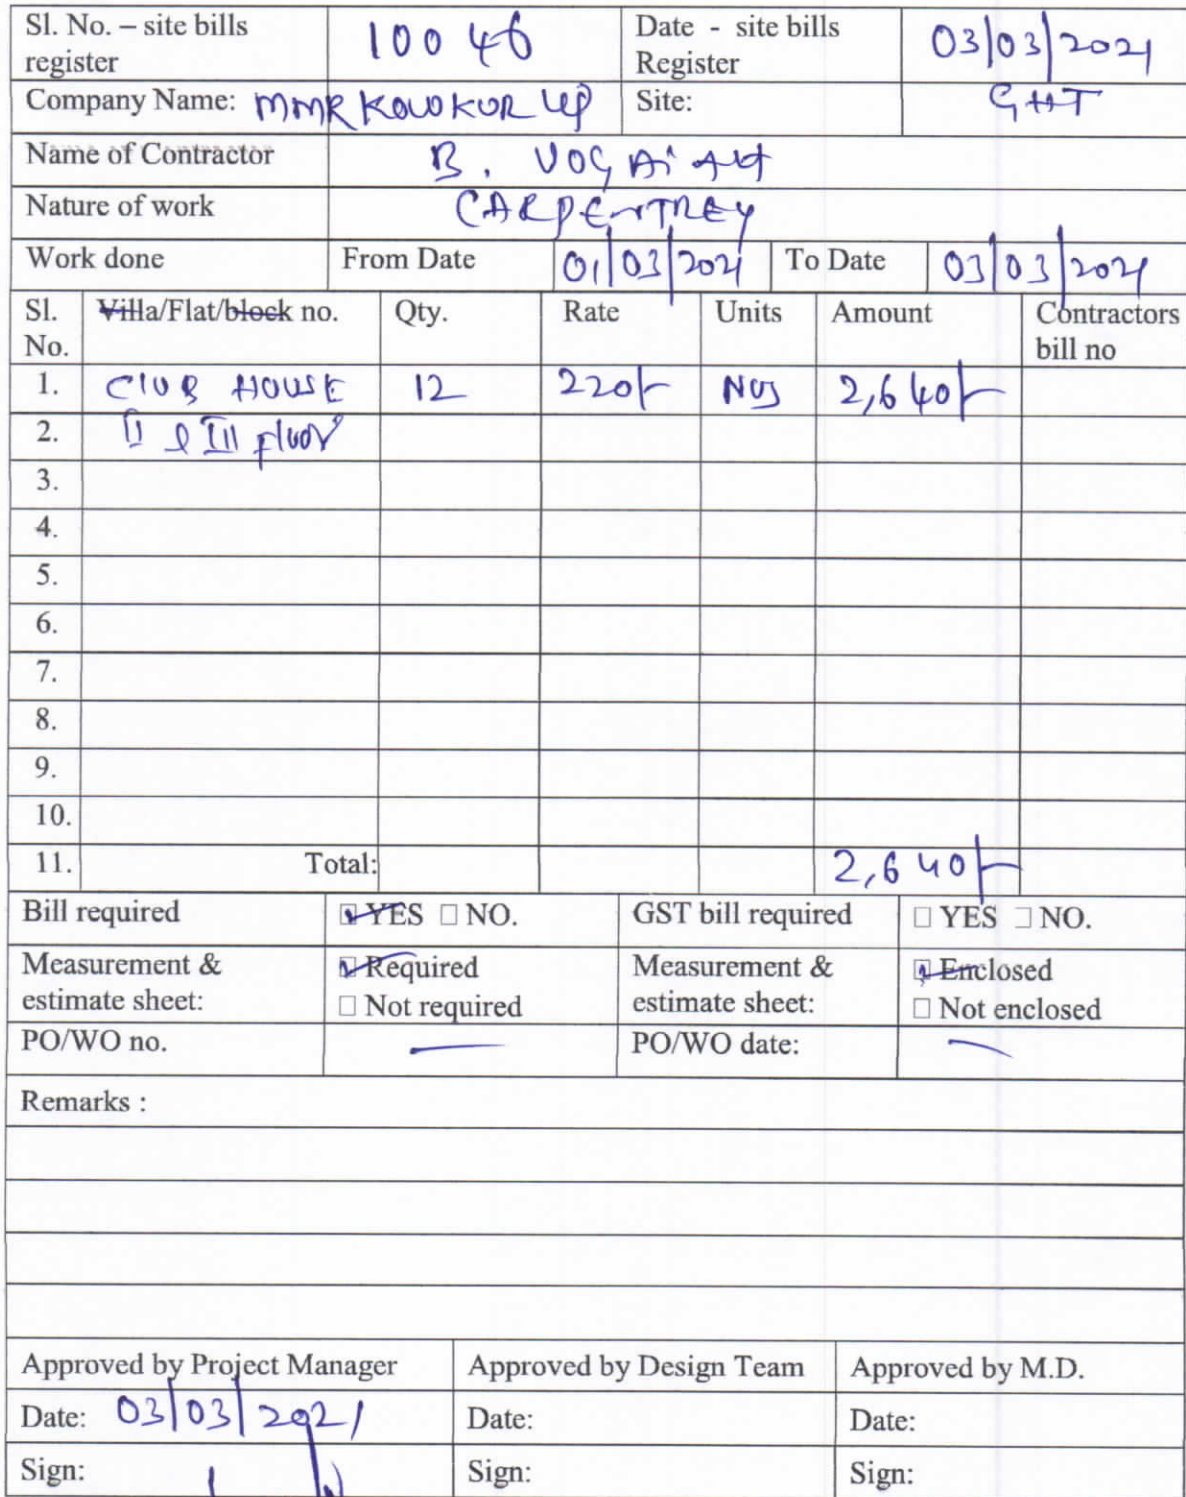 Sl. No. – site bills register 10046 Date - site bills Register 03/03/2021
Company Name: MMR KOWKUR LLP Site: GHT
Name of Contractor B.
Nature of work CARPENTREY
Work done From Date 01/03/2021 To Date 03/03/2021
Sl. No. Villa/Flat/block no. Qty. Rate Units Amount Contractors bill no
1. CLUB HOUSE 12 220/- Nos 2,640/-
2. II & III floor
3.
4.
5.
6.
7.
8.
9.
10.
11. Total: 2,640/-
Bill required YES □ NO. GST bill required □ YES □ NO.
Measurement & estimate sheet: Required □ Not required Measurement & estimate sheet: Enclosed □ Not enclosed
PO/WO no. — PO/WO date: —
Remarks :
Approved by Project Manager Approved by Design Team Approved by M.D.
Date: 03/03/2021 Date: Date:
Sign: Sign: Sign: